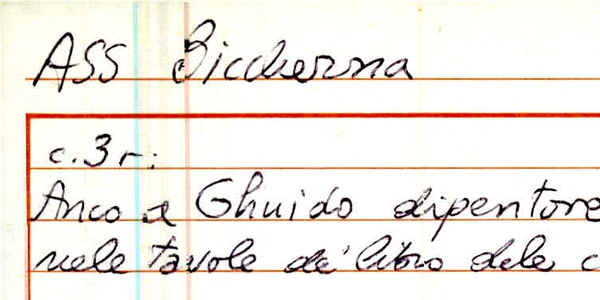 ASS Biccherna
c.3r:
Anco a Ghuido dipentore
nele tavole de' libro dele c